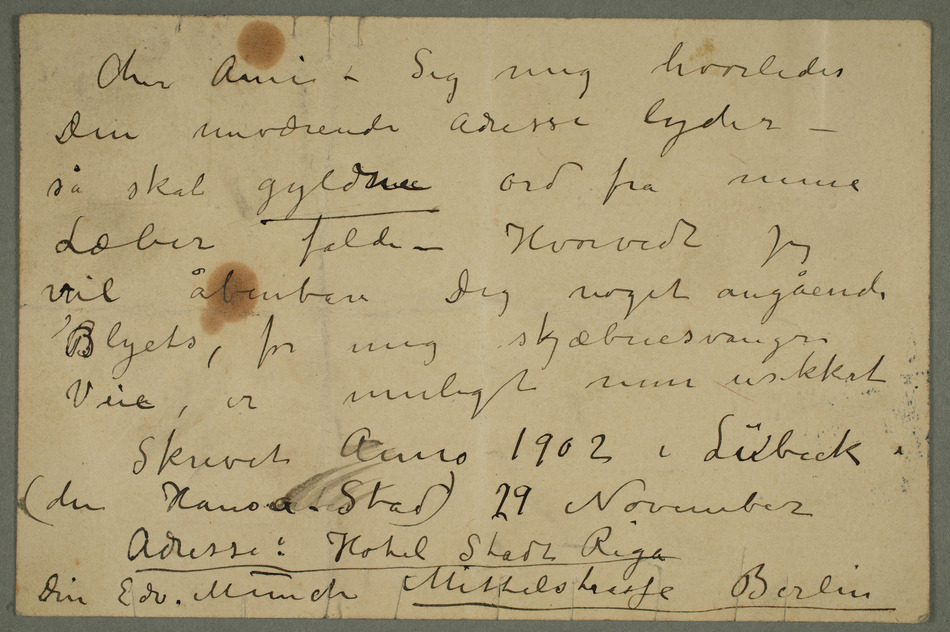 Cher Ami – Sig mig hvorledes
Din nuværende Adresse lyder –
så skal gyldne ord fra mine
Læber falde – Hvorvidt jeg
vil åbenbare Dig noget angående
Blyets, for mig skjæbnesvangre
Veie, er muligt men usikkert
Skrevet Anno 1902 i Lübeck
(den Hansa-Stad) 29 November
Adresse: Hotel Stadt Riga
Din Edv. Munch Mittelstrasse Berlin